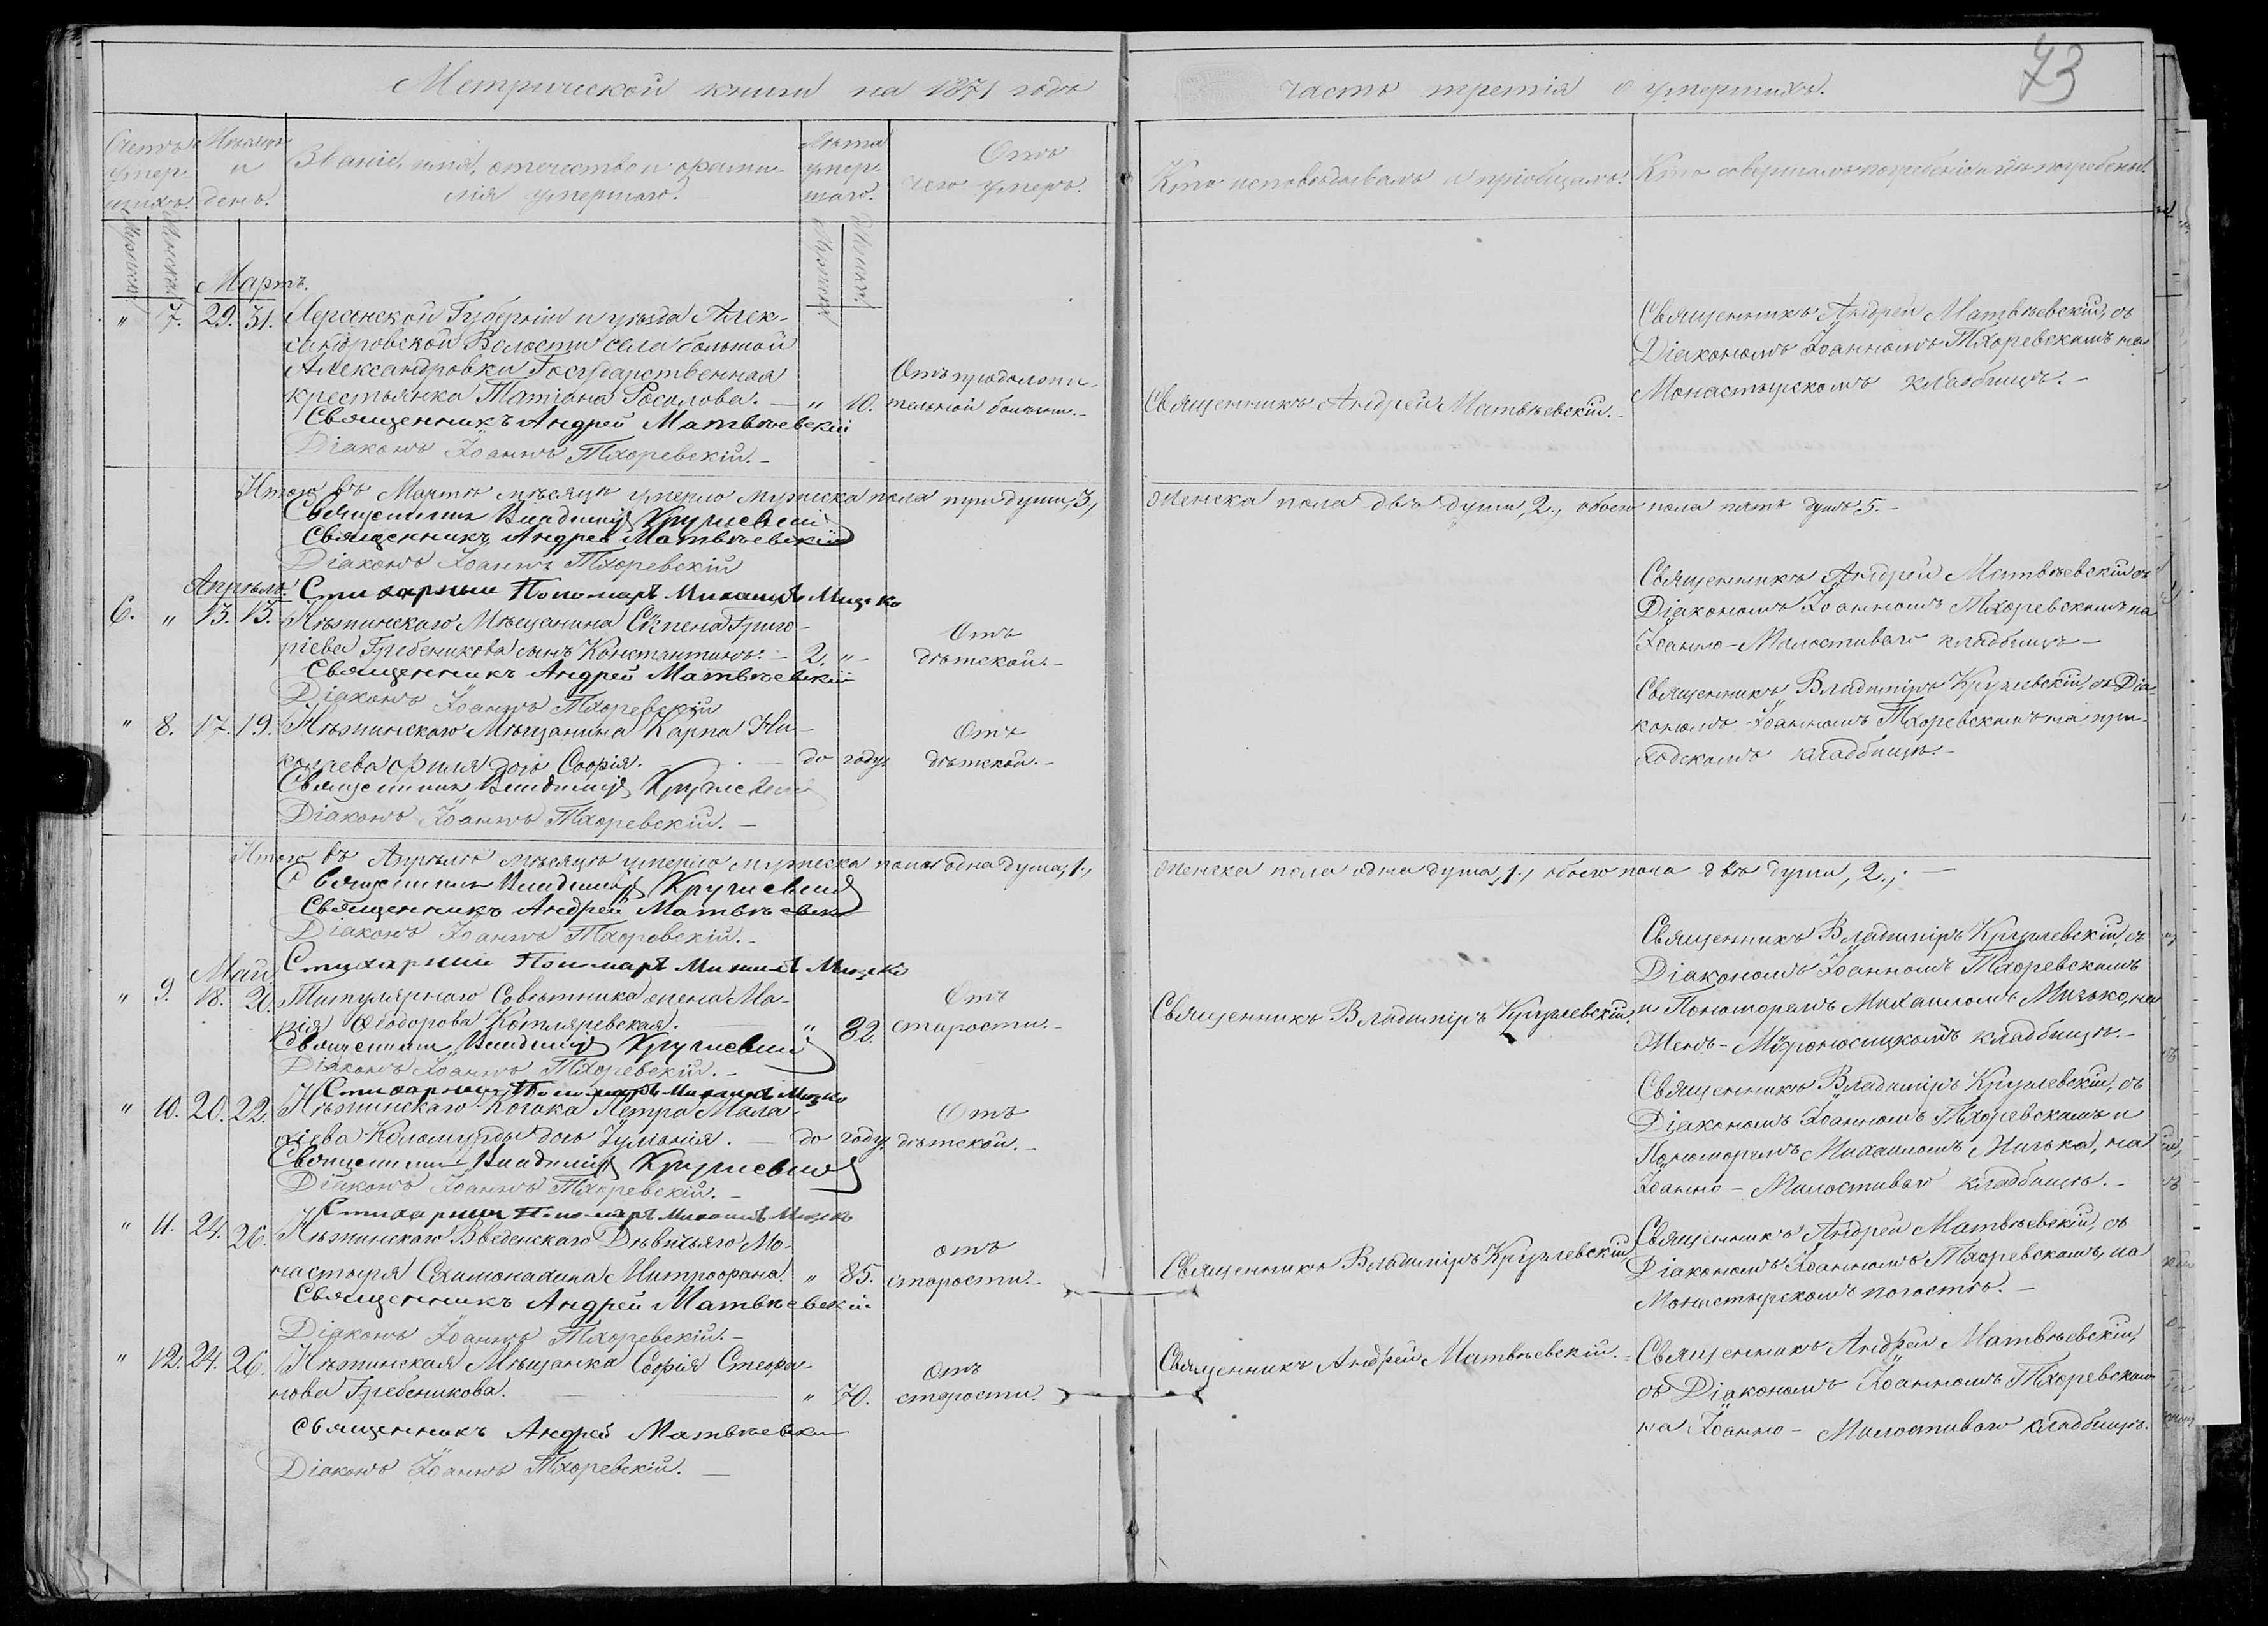 Метрической книги на 1871 годъ
часть третія о умершихъ.
73
Счетъ умер-
шихъ.
Мѣсяцъ
и
день.
Званіе, имя, отечество и фами-
лія умершаго.
Лѣта
умер-
шаго.
Отъ
чего умеръ.
Кто исповѣдывалъ и пріобщалъ.
Кто совершалъ погребеніе и гдѣ погребены.
Мужска.
Женска.
Мужска.
Женска.
Мартъ.
" 7. 29. 31. Херсонской Губерніи и уѣзда Алек-
сандровской Волости села большой
Александровки Государственная
крестьянка Татіана Росолова. — " 10.
Отъ продолжи-
тельной болѣзни. —
Священникъ Андрей Матвѣевскій. —
Священникъ Андрей Матвѣевскій, съ
Діакономъ Іоанномъ Тхоревскимъ на
Монастырскомъ кладбищѣ. —
Священникъ Андрей Матвѣевскій
Діаконъ Іоаннъ Тхоревскій. —
Итого въ Мартѣ мѣсяцѣ умерло мужеска пола три души, 3.,
женска пола двѣ души, 2., обоего пола пять душъ, 5. —
Священникъ Владиміръ Кружевскій
Священникъ Андрей Матвѣевскій
Діаконъ Іоаннъ Тхоревскій
Стихарный Пономарь Михаилъ Мизько
Апрѣль.
6. " 13. 15. Нѣжинскаго Мѣщанина Стѵпена Григо-
ріева Гребеникова сынъ Константинъ. — 2. " —
Отъ
дѣтской. —
Священникъ Андрей Матвѣевскій съ
Діакономъ Іоанномъ Тхоревскимъ на
Іоанно-Милостиваго кладбищѣ —
Священникъ Андрей Матвѣевскій
Діаконъ Іоаннъ Тхоревскій
" 8. 17. 19. Нѣжинскаго Мѣщанина Карпа Ни-
дочь Софія. — до году.
Отъ
дѣтской. —
Священникъ Владиміръ Кружевскій, съ Діа-
кономъ Іоанномъ Тхоревскимъ на при-
ходскомъ кладбищѣ. —
Священникъ Владиміръ Кружевскій
Діаконъ Іоаннъ Тхоревскій. —
Итого въ Апрѣлѣ мѣсяцѣ умерло мужеска пола одна душа, 1.,
женска пола одна душа, 1., обоего пола двѣ души, 2., —
Священникъ Владиміръ Кружевскій
Священникъ Андрей Матвѣевскій
Діаконъ Іоаннъ Тхоревскій. —
Стихарный Пономарь Михаилъ Мизько
Май.
" 9. 18. 20. Титулярнаго Совѣтника жена Ма-
рія Ѳеодорова Котляревская. — " 82.
Отъ
старости. —
Священникъ Владиміръ Кружевскій.
Священникъ Владиміръ Кружевскій, съ
Діакономъ Іоанномъ Тхоревскимъ
и Пономоремъ Михаиломъ Мизько, на
Женъ-Мѵроносицкомъ кладбищѣ. —
Священникъ Владиміръ Кружевскій
Діаконъ Іоаннъ Тхоревскій. —
Стихарный Пономарь Михаилъ Мизько
" 10. 20. 22. Нѣжинскаго Козака Петра Мала-
хіева Коломурды дочь Іуліанія. — до году.
Отъ
дѣтской. —
Священникъ Владиміръ Кружевскій, съ
Діакономъ Іоанномъ Тхоревскимъ и
Пономоремъ Михаиломъ Мизька, на
Іоанно-Милостиваго кладбищѣ. —
Священникъ Владиміръ Кружевскій
Діаконъ Іоаннъ Тхоревскій. —
Стихарный Пономарь Михаилъ Мизько
" 11. 24. 26. Нѣжинскаго Введенскаго Дѣвичьяго Мо-
настыря Схимонахина Митрофана. " 85.
отъ
старости. —
Священникъ Владиміръ Кружевскій
Священникъ Андрей Матвѣевскій, съ
Діакономъ Іоанномъ Тхоревскимъ, на
Монастырскомъ погостѣ. —
Священникъ Андрей Матвѣевскій
Діаконъ Іоаннъ Тхоревскій. —
" 12. 24. 26. Нѣжинская Мѣщанка Софія Стефа-
нова Гребеникова. — " 70.
отъ
старости.
Священникъ Андрей Матвѣевскій. —
Священникъ Андрей Матвѣевскій,
съ Діакономъ Іоанномъ Тхоревскимъ
на Іоанно-Милостиваго кладбищѣ.
Священникъ Андрей Матвѣевскій
Діаконъ Іоаннъ Тхоревскій. —